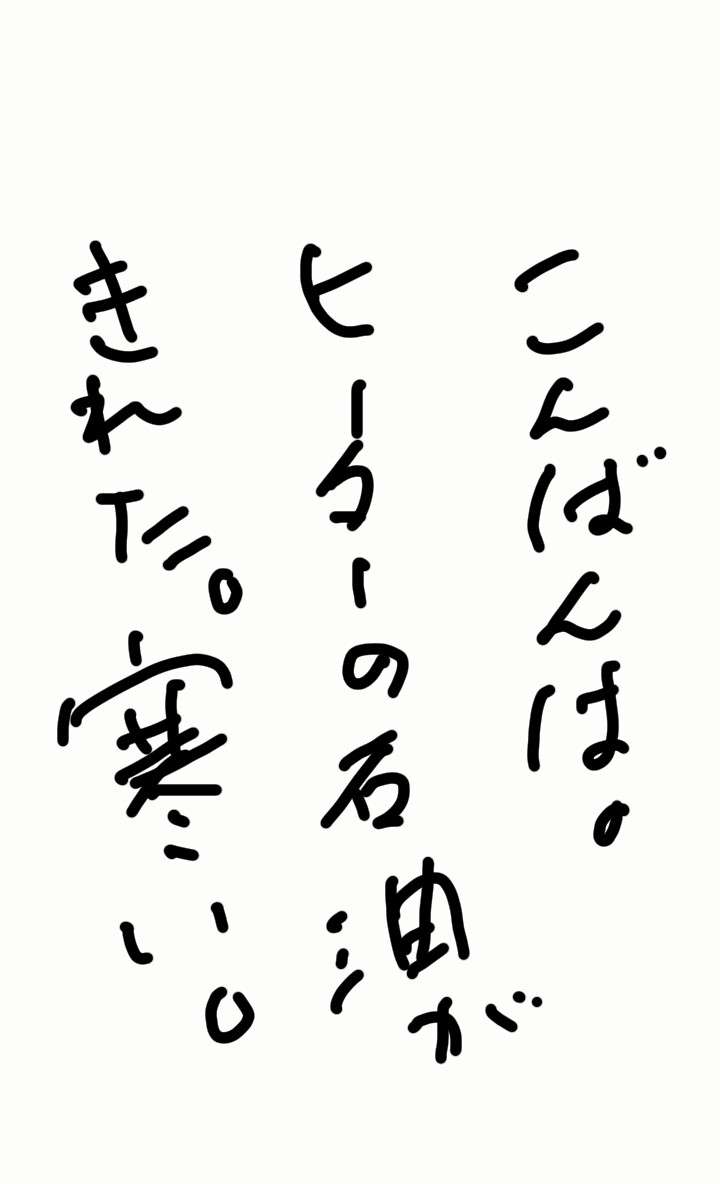 こんばんは。
ヒーターの石油が
きれた。寒い。